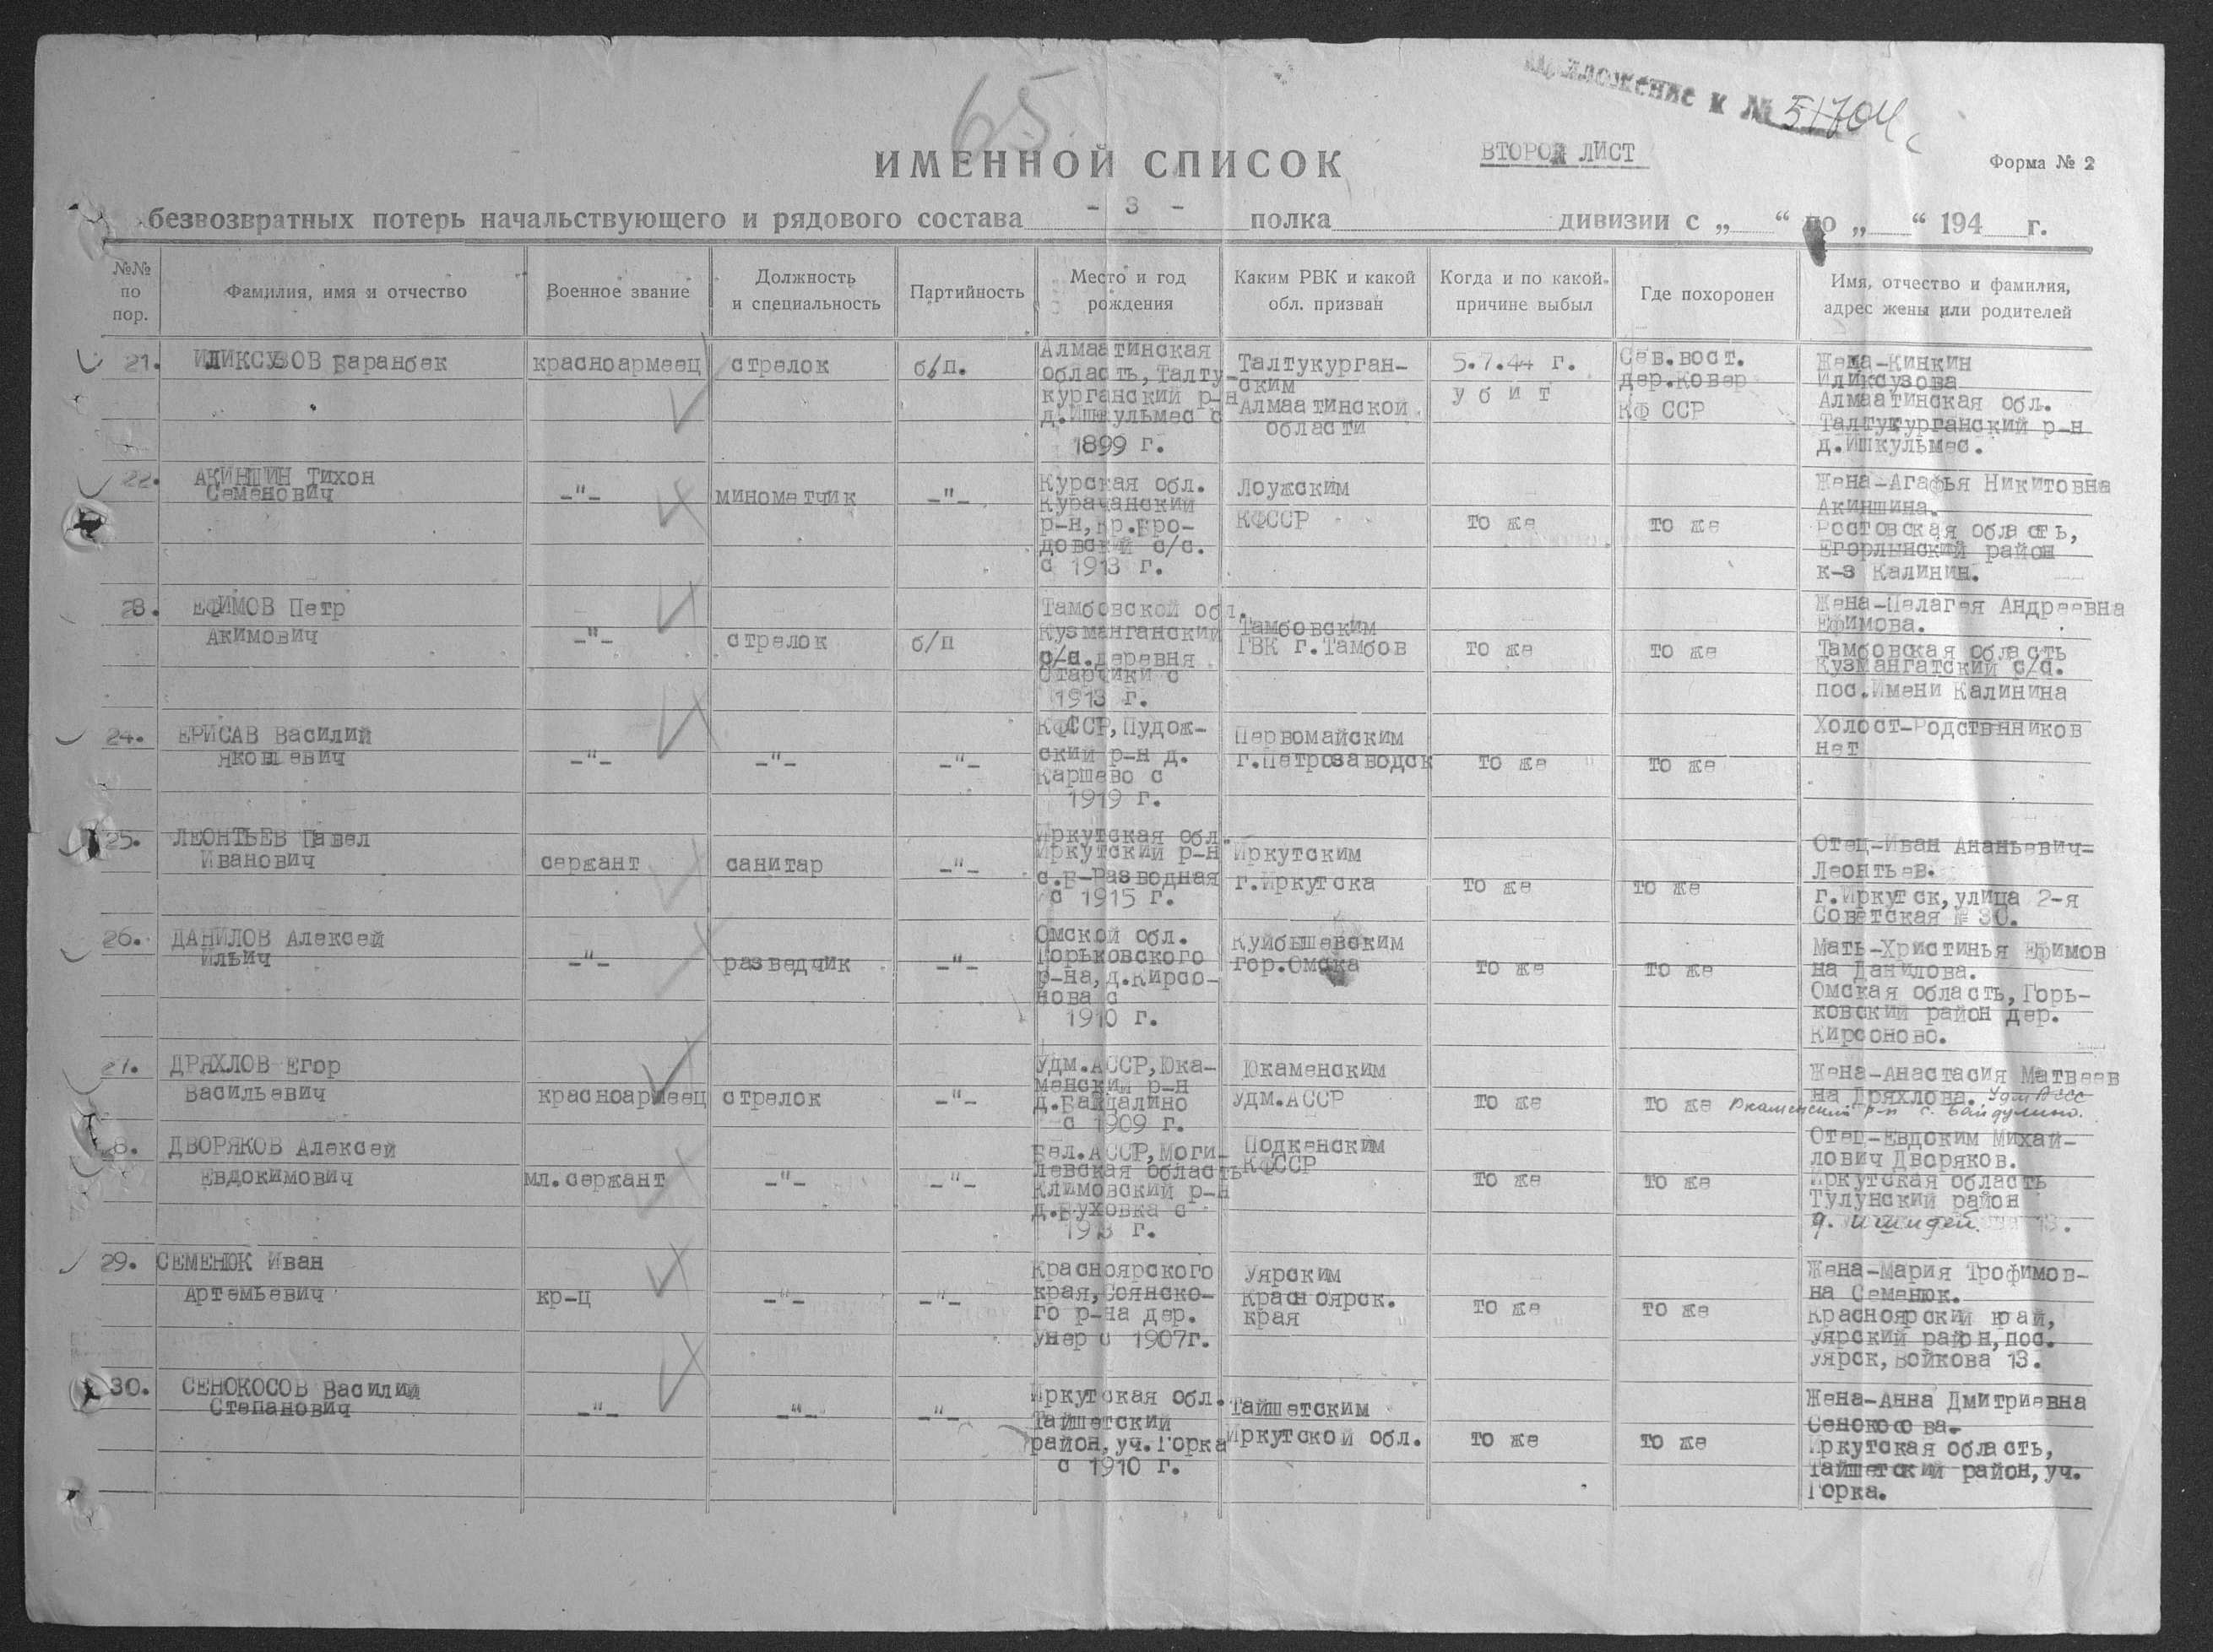 65
Приложение к № 51704 с
ИМЕННОЙ СПИСОК
ВТОРОЙ ЛИСТ
Форма № 2
безвозвратных потерь начальствующего и рядового состава - 3 - полка дивизии с „ “ по „ “ 194 г.
№№ по пор.
Фамилия, имя и отчество
Военное звание
Должность и специальность
Партийность
Место и год рождения
Каким РВК и какой обл. призван
Когда и по какой причине выбыл
Где похоронен
Имя, отчество и фамилия, адрес жены или родителей
21.
ИЛИКСУЗОВ Баранбек
красноармеец
стрелок
б/п.
Алмаатинская
область, Талту-
курганский р-н
д.Ишкульмес с
1899 г.
Талтукурган-
ским
Алмаатинской
области
5.7.44 г.
убит
Сев.вост.
дер.Ковер
КФ ССР
Жена-Кинкин
Иликсузова
Алмаатинская обл.
Талтукурганский р-н
д.Ишкульмес.
22.
АКИНШИН Тихон
Семенович
-"-
минометчик
-"-
Курская обл.
Курачанский
р-н, Кр.Бро-
довский с/с.
с 1913 г.
Лоужским
КФССР
то же
то же
Жена-Агафья Никитовна
Акиншина.
Ростовская область,
Егорлынский район
к-з Калинин.
23.
ЕФИМОВ Петр
Акимович
-"-
стрелок
б/п
Тамбовской обл.
Кузманганский
с/с.деревня
Старчики с
1913 г.
Тамбовским
ГВК г.Тамбов
то же
то же
Жена-Пелагея Андреевна
Ефимова.
Тамбовская область
Кузмангатский с/с.
пос.Имени Калинина
24.
ЕРИСАВ Василий
Яковлевич
-"-
-"-
-"-
КФССР, Пудож-
ский р-н д.
Каршево с
1919 г.
Первомайским
г.Петрозаводск
то же
то же
Холост-Родственников
нет
25.
ЛЕОНТЬЕВ Павел
Иванович
сержант
санитар
-"-
Иркутская обл.
Иркутский р-н
с.Б-Разводная
с 1915 г.
Иркутским
г.Иркутска
то же
то же
Отец-Иван Ананьевич-
Леонтьев.
г.Иркутск, улица 2-я
Советская № 30.
26.
ДАНИЛОВ Алексей
Ильич
-"-
разведчик
-"-
Омской обл.
Горьковского
р-на, д.Кирсо-
нова с
1910 г.
Куйбышевским
гор.Омска
то же
то же
Мать-Христинья Ефимов
на Данилова.
Омская область, Горь-
ковский район дер.
Кирсоново.
27.
ДРЯХЛОВ Егор
Васильевич
красноармеец
стрелок
-"-
Удм.АССР, Юка-
менский р-н
д.Байдалино
с 1909 г.
Юкаменским
Удм.АССР
то же
то же
Жена-Анастасия Матвеев
на Дряхлова. Удм АССС
Юкаменский р-н с. Байдулино.
8.
ДВОРЯКОВ Алексей
Евдокимович
мл.сержант
-"-
-"-
Бел.АССР, Моги-
левская область
Климовский р-н
д.Буховка с
1913 г.
Подкенским
КФССР
то же
то же
Отец-Евдоким Михай-
лович Дворяков.
Иркутская область
Тулунский район
д. Ишидей. 13.
29.
СЕМЕНЮК Иван
Артемьевич
кр-ц
-"-
-"-
Красноярского
края, Соянско-
го р-на дер.
Унер с 1907г.
Уярским
Красноярск.
края
то же
то же
Жена-Мария Трофимов-
на Семенюк.
Красноярский край,
Уярский район, пос.
Уярск, Войкова 13.
30.
СЕНОКОСОВ Василий
Степанович
-"-
-"-
-"-
Иркутская обл.
Тайшетский
район, уч.Горка
с 1910 г.
Тайшетским
Иркутской обл.
то же
то же
Жена-Анна Дмитриевна
Сенокосова.
Иркутская область,
Тайшетский район, уч.
Горка.